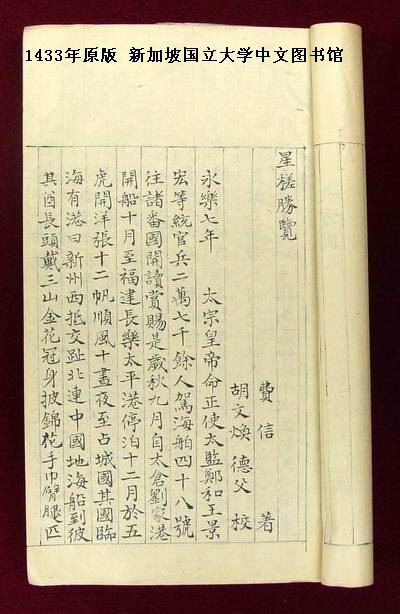 1433年原版 新加坡国立大学中文图书馆
星槎勝覽
費信 著
胡文煥 德父 校
永樂七年 太宗皇帝命正使太監鄭和王景
宏等統官兵二萬七千餘人駕海舶四十八號
往諸番國開讀賞賜是歲秋九月自太倉劉家港
開船十月至福建長樂太平港停泊十二月於五
虎開洋張十二帆順風十晝夜至占城國其國臨
海有港曰新州西抵交趾北連中國地海船到彼
其酋長頭戴三山金花冠身披錦花手巾臂腿四